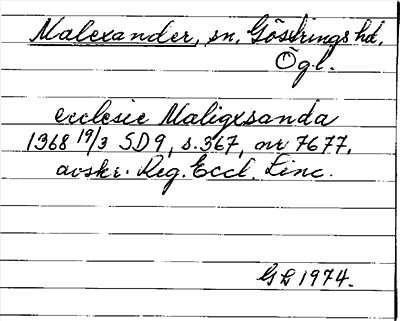 Malexander, sn. Göstrings hd.
Ögl.
ecclesie Maligxsanda
1368 19/3 SD9, s. 367, nr 7677,
avskr. Reg. Eccl. Linc.
GL 1974.